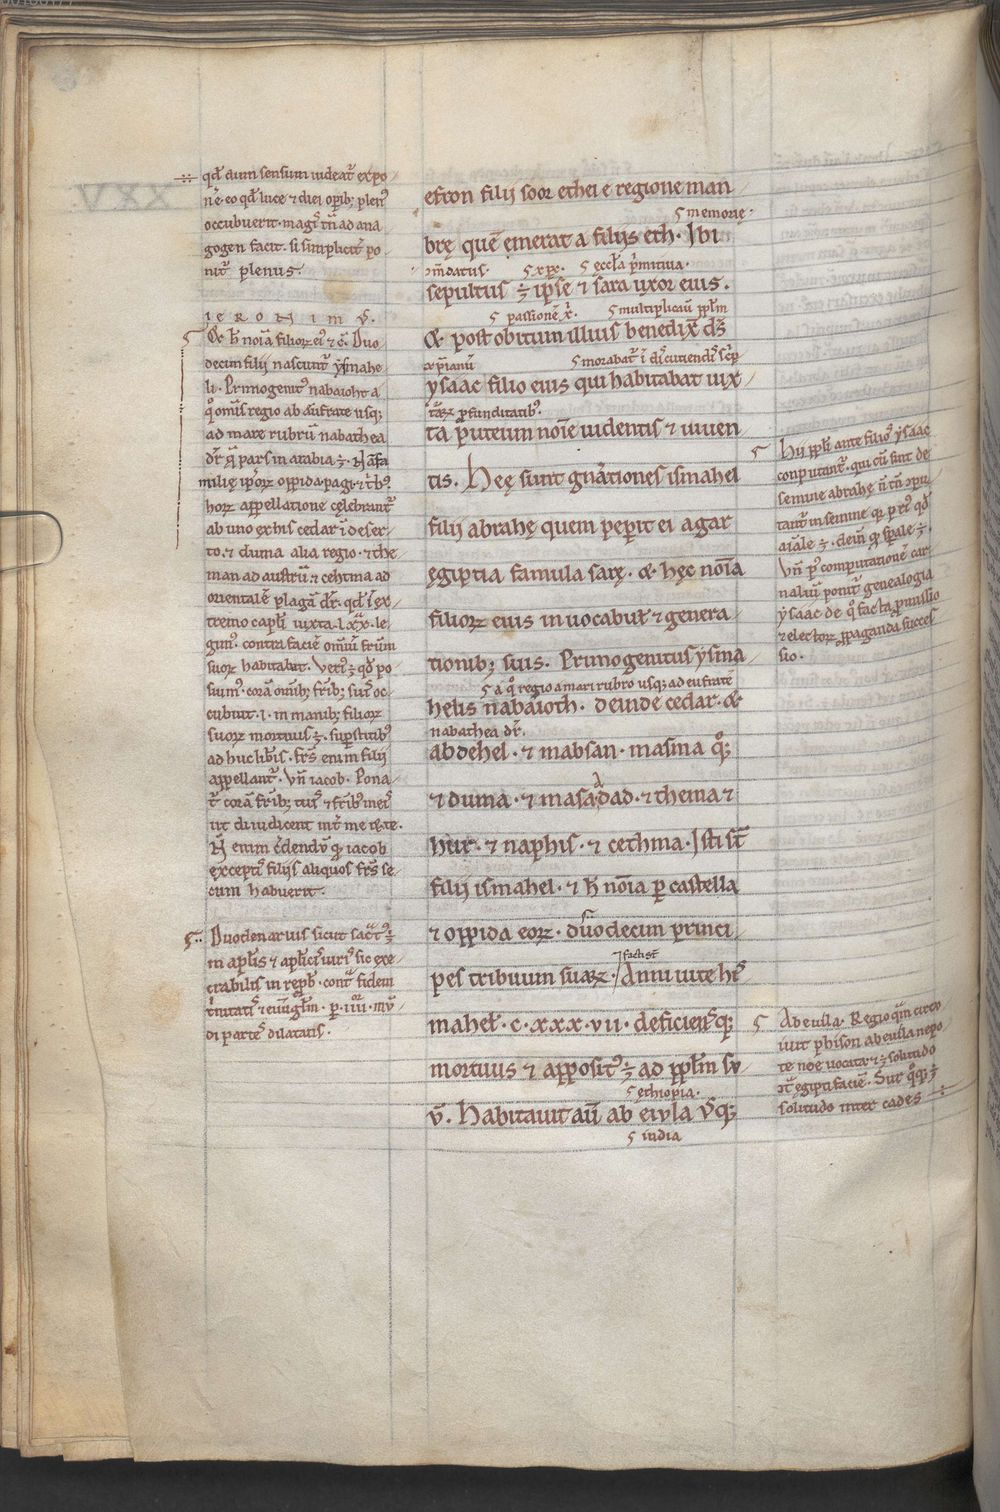 qd̄ dum sensum uideat᷑ expo
n̄e. eo qd̄ luce ⁊ diei opib; plen᷒
occubuerit. magis tn̄ ad ana
gogen facit. si simplicit᷑ po
nit᷑ plenus.
IERONIM V̄.
Et h̄ noīa filioꝝ ei᷒ ⁊ c̄. Duo
decim filii nascunt᷑ ysmahe
li. Primogenit᷒ nabaioht a
qͦ omīs regio ab aufrate usq;
ad mare rubrū nabathea
dr̄ q̄ pars in arabia ÷. Nā fa
milię ipsoꝝ oppida. pagi. ⁊ t̄b᷒
horꝝ appellatione cęlebrant᷑
ab uno ex his cedar ī deser
to. ⁊ duma alia regio. ⁊ the
man ad austrū. ⁊ cehtma ad
orientalē plagā dr̄. qd̄ ī ex
tremo capłi iuxta. lxx. le
gim᷒. contra faciē omniū frm̄
suoꝝ habitabit. Veri᷒ ÷ qd̄ po
suim᷒. corā omīb; fr̄ib; suis oc
cubuit. i. in manib; filioꝝ
suoꝝ mortuus ÷. superstitib᷒
ad huc lib̄is. frs̄ enim filii
appellant᷑. Vn̄ iacob. Pona
t᷑ corā fr̄ib; tuis ⁊ fr̄ib᷒ meis
ut diiudicent int᷑ me ⁊ te.
N̄ enim c̄dendū qͣ iacob
exceptis filiis aliquos frs̄ se
cum habuerit.
Duodenarius sicut sac̄t᷒ ÷
in apłis ⁊ aplicis uiris sic exe
crabilis in rep̄b. cont̄ fidem
t̄nitatis ⁊ euuͣḡlm. p. iiii. mū
di partes dilatatis.
efron filii soor ethei e regione man
ς memorie.
brę quē emerat a filiis eth. Ibi
ͻm̄datus. ς xp̄c. ς ęccła p̄mitiua.
sepultus ÷ ipse ⁊ sara uxor eius.
ς passionē x̄. ς multiplicauit ppłm
Et post obitum illius benedix̄ ds̄
ysaac filio eius qui habitabat iux
taꝝ profunditatib᷒.
ta puteum noīe uidentis ⁊ uiuen
tis. Hęę sunt gn̄ationes ismahel
filii abrahę quem pepit ei agar
ęgiptia famula sarę. Et hęc noīa
filioꝝ eius in uocabul̄ ⁊ genera
tionib; suis. Primogenitus ysma
ς a qͦ regio a mari rubro usq; ad eufratē
helis nabaioth. deinde cedar. et
nabathea dr̄.
abdehel. ⁊ mabsan. masma qͦ;
⁊ duma. ⁊ masa. adad. ⁊ thema ⁊
hur. ⁊ naphis. ⁊ cethma. Isti st̄
filii ismahel. ⁊ h̄ noīa p castella
⁊ oppida eoꝝ. duodecim princi
facti st̄
pes tribuum suaꝝ. Anni uite his
mahel. c. xxx. vii. deficiensq;
mortuus ⁊ apposit᷒ ÷ ad ppłm su
ς ęthiopia.
ū. Habitauit aū ab eiula usq;
ς india
ς Hii ppłi ante filios ysaac
conputant᷑. qui cū sint de
semine abrahę n̄ tn̄ ͻpu
tant᷑ in semine
aīale ÷. dein̄ qͣ sp̄ale ÷.
Vn̄ p᷒ computationē car
naliū ponit᷑ genealogia
ysaac de qͦ facta p̄missio
⁊ electoꝝ ppaganda succes
sio.
ς Ab euila. Regio qm̄ circu
iuit phison ab euila nepo
te noe uocata ⁊ ÷ solitudo
ͻt̄ ęgipti faciē. Sur qͦq; ÷
solitudo inter cades